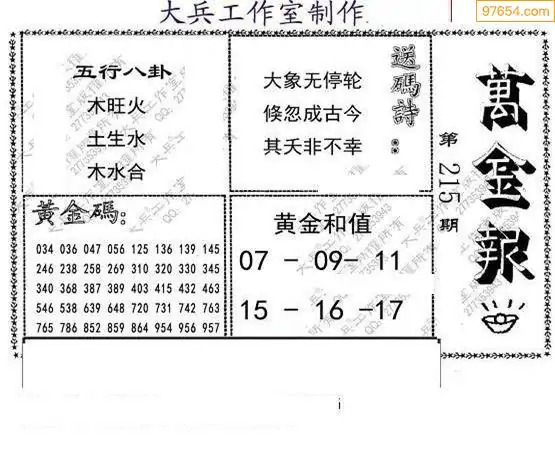 大兵工作室制作
97654.com
五行八卦
木旺火
土生水
木水合
送碼詩：
大象无停轮
倏忽成古今
其夭非不幸
萬金报
第215期
黄金碼:
034 036 047 056 125 136 139 145
246 238 258 269 310 320 330 345
340 368 387 389 403 415 432 463
546 538 639 648 720 731 742 763
765 786 852 859 864 954 956 957
黄金和值
07 - 09- 11
15 - 16 -17